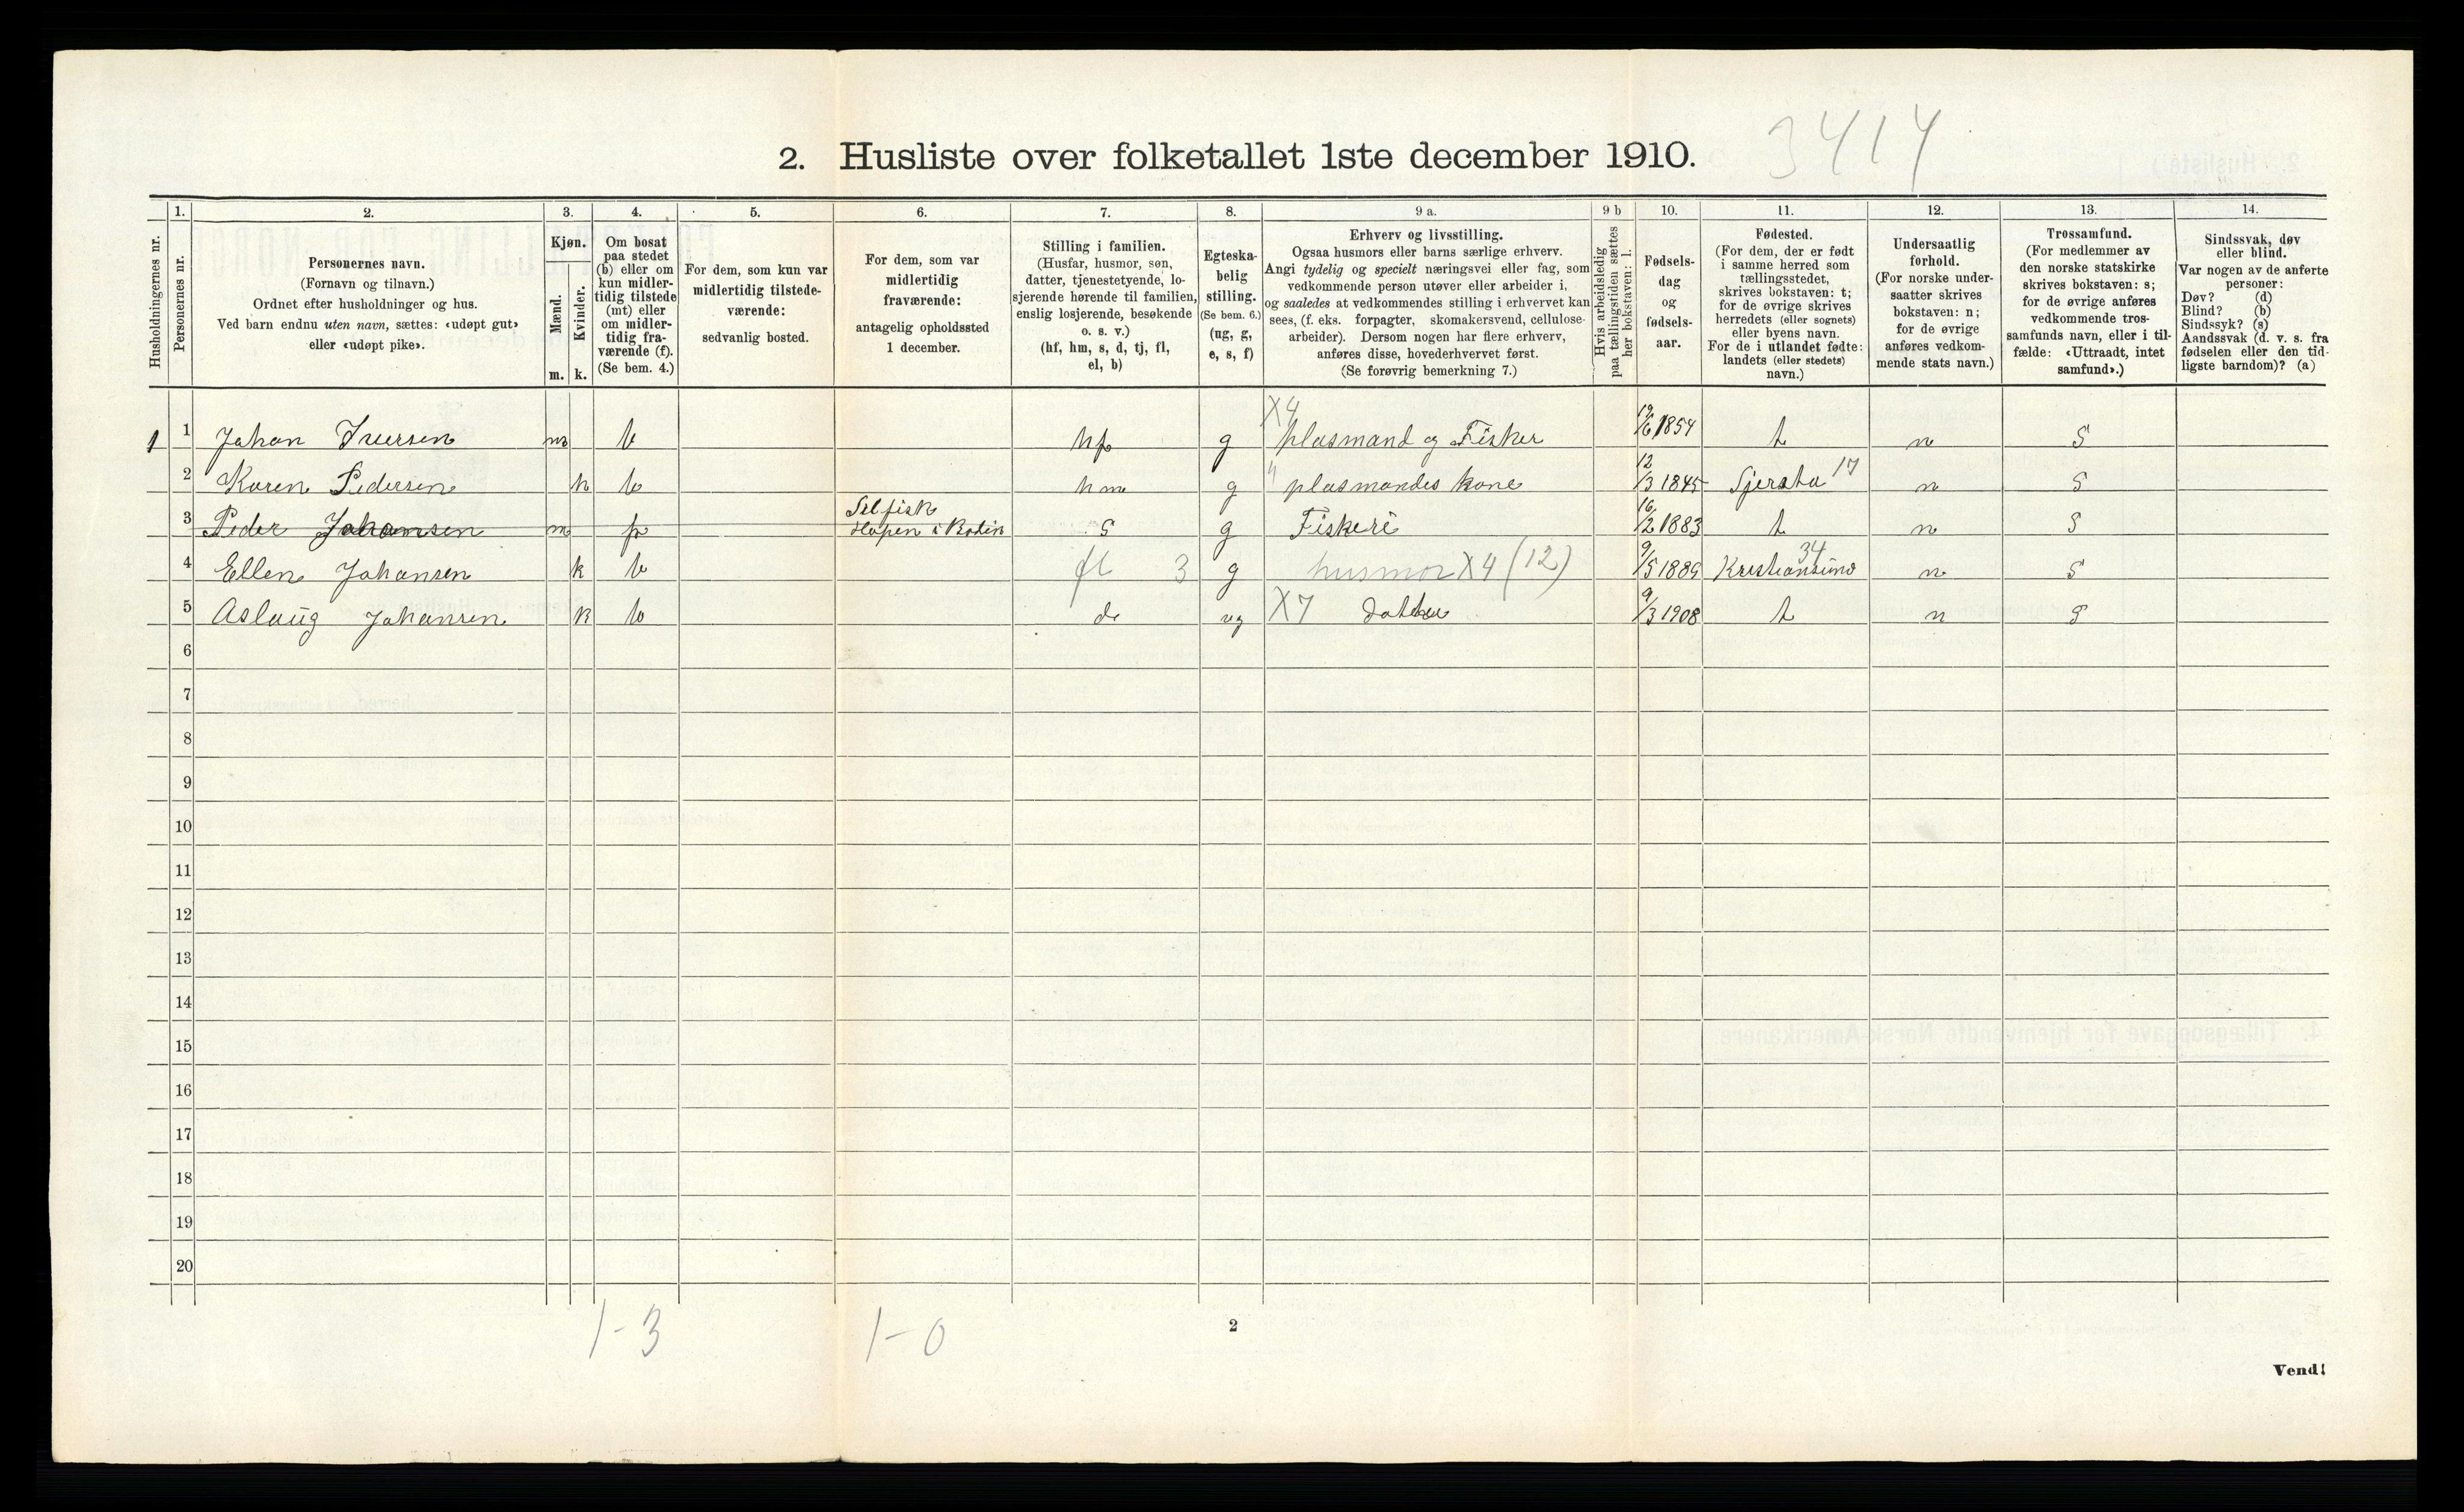 2. Husliste over folketallet 1ste december 1910.
3414
Husholdningernes nr.
1. Personernes nr.
2. Personernes navn.
(Fornavn og tilnavn.)
Ordnet efter husholdninger og hus.
Ved barn endnu uten navn, sættes: «udøpt gut»
eller «udøpt pike».
3. Kjøn.
Mænd. m.
Kvinder. k.
4. Om bosat
paa stedet
(b) eller om
kun midler-
tidig tilstede
(mt) eller
om midler-
tidig fra-
værende (f).
(Se bem. 4.)
5. For dem, som kun var
midlertidig tilstede-
værende:
sedvanlig bosted.
6. For dem, som var
midlertidig
fraværende:
antagelig opholdssted
1 december.
7. Stilling i familien.
(Husfar, husmor, søn,
datter, tjenestetyende, lo-
sjerende hørende til familien,
enslig losjerende, besøkende
o. s. v.)
(hf, hm, s, d, tj, fl,
el, b)
8. Egteska-
belig
stilling.
(Se bem. 6.)
(ug, g,
e, s, f)
9 a. Erhverv og livsstilling.
Ogsaa husmors eller barns særlige erhverv.
Angi tydelig og specielt næringsvei eller fag, som
vedkommende person utøver eller arbeider i,
og saaledes at vedkommendes stilling i erhvervet kan
sees, (f. eks. forpagter, skomakersvend, cellulose-
arbeider). Dersom nogen har flere erhverv,
anføres disse, hovederhvervet først.
(Se forøvrig bemerkning 7.)
9 b Hvis arbeidsledig
paa tællingstiden sættes
her bokstaven: l.
10. Fødsels-
dag
og
fødsels-
aar.
11. Fødested.
(For dem, der er født
i samme herred som
tællingsstedet,
skrives bokstaven: t;
for de øvrige skrives
herredets (eller sognets)
eller byens navn.
For de i utlandet fødte:
landets (eller stedets)
navn.)
12. Undersaatlig
forhold.
(For norske under-
saatter skrives
bokstaven: n;
for de øvrige
anføres vedkom-
mende stats navn.)
13. Trossamfund.
(For medlemmer av
den norske statskirke
skrives bokstaven: s;
for de øvrige anføres
vedkommende tros-
samfunds navn, eller i til-
fælde: «Uttraadt, intet
samfund».)
14. Sindssvak, døv
eller blind.
Var nogen av de anførte
personer:
Døv? (d)
Blind? (b)
Sindssyk? (s)
Aandssvak (d. v. s. fra
fødselen eller den tid-
ligste barndom)? (a)
1 1 Johan Iversen m b hf g X4 plasmand og Fisker 12/6 1854 t n S
2 Karen Pedersen k b hm g 4 plasmandes kone 12/3 1845 17 n S
3 Peder Johansen m f Hopen i Bodin S g Fiskeri 16/2 1883 t n S
4 Ellen Johansen k b fl 3 g husmor X4 (12) 9/5 1889 Kristiansund 34 n S
5 Aslaug Johansen k b d ug X7 Datter 9/3 1908 t n S
6
7
8
9
10
11
12
13
14
15
16
17
18
19
20
1-3 1-0
2
Vend!